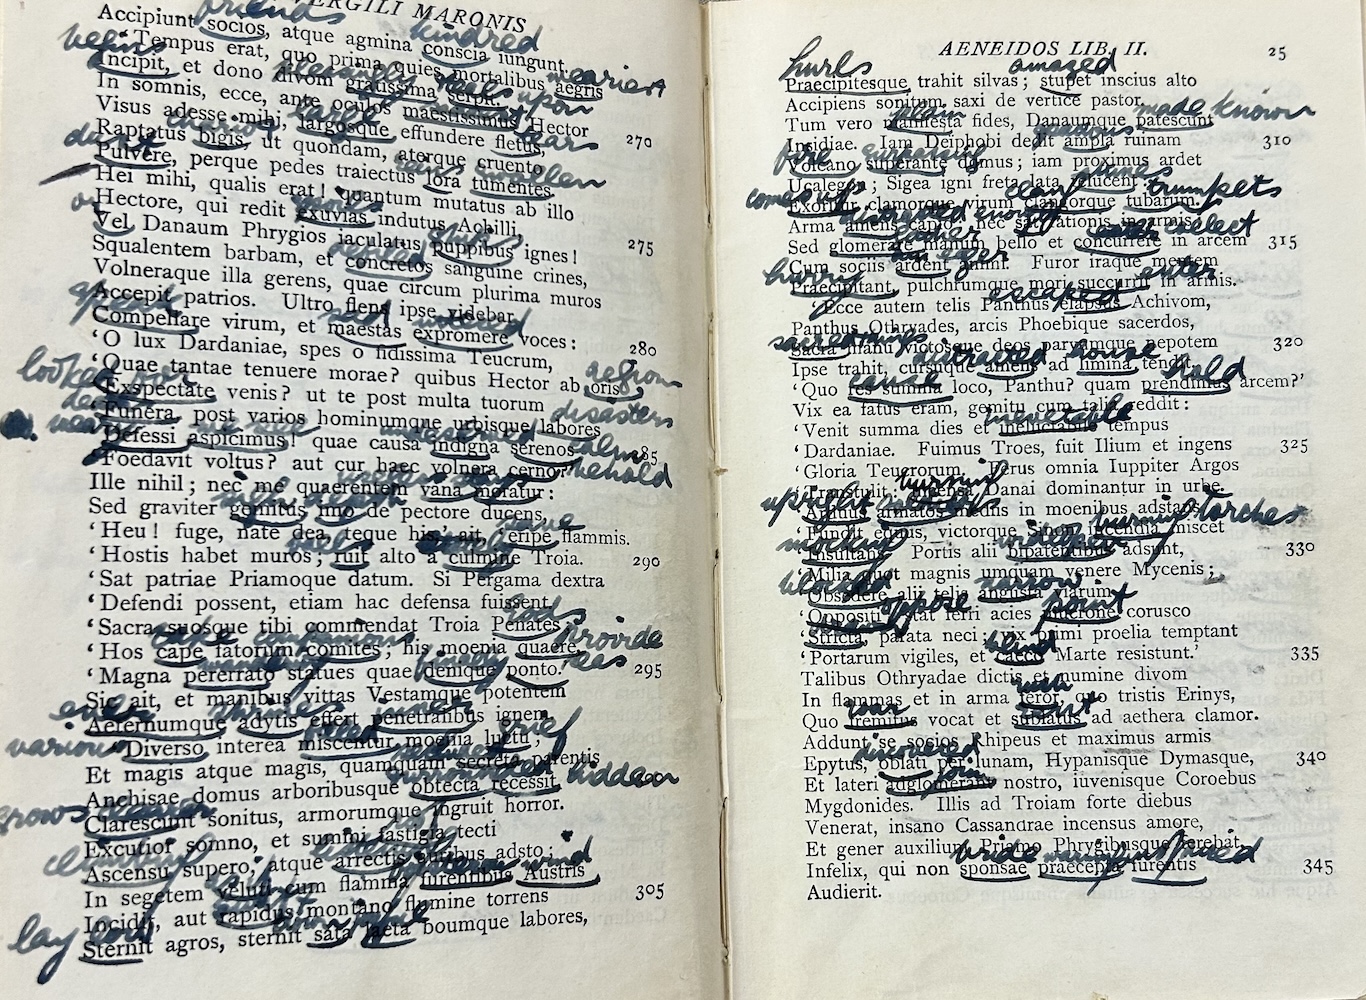 VERGILI MARONIS
friends kindred
Accipiunt socios, atque agmina conscia iungunt.
begins
Tempus erat, quo prima quies mortalibus aegris
weariest
Incipit, et dono divom gratissima serpit.
In somnis, ecce, ante oculos maestissimus Hector
upon
Visus adesse mihi, largosque effundere fletus, 270
large tears
Raptatus bigis, ut quondam, aterque cruento
Pulvere, perque pedes traiectus lora tumentes.
swollen
Hei mihi, qualis erat! quantum mutatus ab illo
Hectore, qui redit exuvias indutus Achilli,
or
Vel Danaum Phrygios iaculatus puppibus ignes! 275
Squalentem barbam, et concretos sanguine crines,
Volneraque illa gerens, quae circum plurima muros
Accepit patrios. Ultro flens ipse videbar
Compellare virum, et maestas expromere voces:
‘O lux Dardaniae, spes o fidissima Teucrum, 280
‘Quae tantae tenuere morae? quibus Hector ab oris
looked for
‘Exspectate venis? ut te post multa tuorum
‘Funera, post varios hominumque urbisque labores
disasters
‘Defessi aspicimus! quae causa indigna serenos 285
behold
‘Foedavit voltus? aut cur haec volnera cerno?’
Ille nihil; nec me quaerentem vana moratur:
Sed graviter gemitus imo de pectore ducens,
‘Heu! fuge, nate dea, teque his,’ ait, ‘eripe flammis.
‘Hostis habet muros; ruit alto a culmine Troia. 290
‘Sat patriae Priamoque datum. Si Pergama dextra
‘Defendi possent, etiam hac defensa fuissent.
‘Sacra suosque tibi commendat Troia Penates;
companions
‘Hos cape fatorum comites; his moenia quaere,
wandering
‘Magna pererrato statues quae denique ponto.’ 295
Sic ait, et manibus vittas Vestamque potentem
Aeternumque adytis effert penetralibus ignem.
various grief
Diverso interea miscentur moenia luctu;
Et magis atque magis, quamquam secreta parentis
hidden
Anchisae domus arboribusque obtecta recessit,
grows
Clarescunt sonitus, armorumque ingruit horror.
Excutior somno, et summi fastigia tecti
Ascensu supero, atque arrectis auribus adsto:
wind
In segetem veluti cum flamma furentibus Austris 305
Incidit, aut rapidus montano flumine torrens
lay
Sternit agros, sternit sata laeta boumque labores,
AENEIDOS LIB. II. 25
hurls amazed
Praecipitesque trahit silvas; stupet inscius alto
Accipiens sonitum saxi de vertice pastor.
plain made known
Tum vero manifesta fides, Danaumque patescunt
Insidiae. Iam Deiphobi dedit ampla ruinam 310
fire
Volcano superante domus; iam proximus ardet
Ucalegon; Sigea igni freta lata relucent.
comes up trumpets
Exoritur clamorque virum clangorque tubarum.
Arma amens capio; nec sat rationis in armis;
collect
Sed glomerare manum bello et concurrere in arcem 315
Cum sociis ardent animi. Furor iraque mentem
enter
Praecipitant, pulchrumque mori succurrit in armis.
escaped
‘Ecce autem telis Panthus elapsus Achivom,
Panthus Othryades, arcis Phoebique sacerdos,
sacred things
Sacra manu victosque deos parvumque nepotem 320
distracted house
Ipse trahit, cursuque amens ad limina tendit.
cause hold
‘Quo res summa loco, Panthu? quam prendimus arcem?’
Vix ea fatus eram, gemitu cum talia reddit:
‘Venit summa dies et ineluctabile tempus
‘Dardaniae. Fuimus Troes, fuit Ilium et ingens 325
‘Gloria Teucrorum. Ferus omnia Iuppiter Argos
‘Transtulit: incensa Danai dominantur in urbe.
upright
‘Arduus armatos mediis in moenibus adstans
burning torches
‘Fundit equus, victorque Sinon incendia miscet
‘Insultans. Portis alii bipatentibus adsunt, 330
‘Milia quot magnis umquam venere Mycenis;
narrow
‘Obsedere alii telis angusta viarum
oppose point
‘Oppositi; stat ferri acies mucrone corusco
‘Stricta, parata neci: vix primi proelia temptant
blind
‘Portarum vigiles, et caeco Marte resistunt.’ 335
Talibus Othryadae dictis et numine divom
In flammas et in arma feror, quo tristis Erinys,
Quo fremitus vocat et sublatus ad aethera clamor.
Addunt se socios Rhipeus et maximus armis
Epytus, oblati per lunam, Hypanisque Dymasque, 340
join
Et lateri adglomerant nostro, iuvenisque Coroebus
Mygdonides. Illis ad Troiam forte diebus
Venerat, insano Cassandrae incensus amore,
Et gener auxilium Priamo Phrygibusque ferebat,
bride warnings
Infelix, qui non sponsae praecepta furentis 345
Audierit.